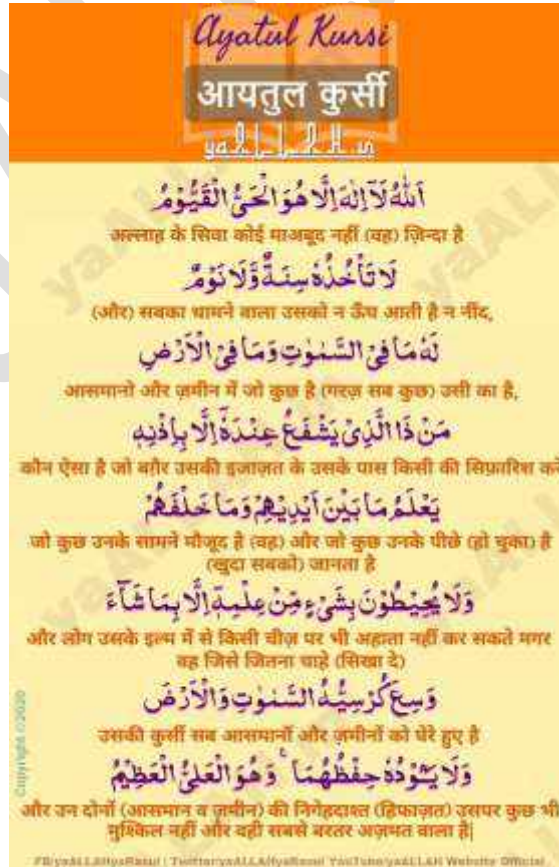 Ayatul Kursi
आयतुल कुर्सी
yaALLAH.in
اَللّٰهُ لَآ اِلٰهَ اِلَّا هُوَ الْحَیُّ الْقَیُّوْمُ
अल्लाह के सिवा कोई माअबूद नहीं (वह) ज़िन्दा है
لَا تَاْخُذُهٗ سِنَةٌ وَّلَا نَوْمٌ
(और) सबका थामने वाला उसको न ऊँघ आती है न नींद,
لَهٗ مَا فِی السَّمٰوٰتِ وَمَا فِی الْاَرْضِ
आसमानो और ज़मीन में जो कुछ है (गरज़ सब कुछ) उसी का है,
مَنْ ذَا الَّذِیْ یَشْفَعُ عِنْدَهٗۤ اِلَّا بِاِذْنِهٖ
कौन ऐसा है जो बग़ैर उसकी इजाज़त के उसके पास किसी की सिफ़ारिश करे
یَعْلَمُ مَا بَیْنَ اَیْدِیْهِمْ وَمَا خَلْفَهُمْ
जो कुछ उनके सामने मौजूद है (वह) और जो कुछ उनके पीछे (हो चुका) है
(खुदा सबको) जानता है
وَلَا یُحِیْطُوْنَ بِشَیْءٍ مِّنْ عِلْمِهٖۤ اِلَّا بِمَا شَآءَ
और लोग उसके इल्म में से किसी चीज़ पर भी अहाता नहीं कर सकते मगर
वह जिसे जितना चाहे (सिखा दे)
وَسِعَ كُرْسِیُّهُ السَّمٰوٰتِ وَالْاَرْضَ
उसकी कुर्सी सब आसमानों और ज़मीनों को घेरे हुए है
وَلَا یَـُٔوْدُهٗ حِفْظُهُمَا ۚ وَهُوَ الْعَلِیُّ الْعَظِیْمُ
और उन दोनों (आसमान व ज़मीन) की निगेहदाश्त (हिफ़ाज़त) उसपर कुछ भी
मुश्किल नहीं और वही सबसे बरतर अज़मत वाला है|
Copyright ©2020
FB/yaALLAHyaRasul | Twitter/yaALLAHyaRasul YouTube/yaALLAH Website Official